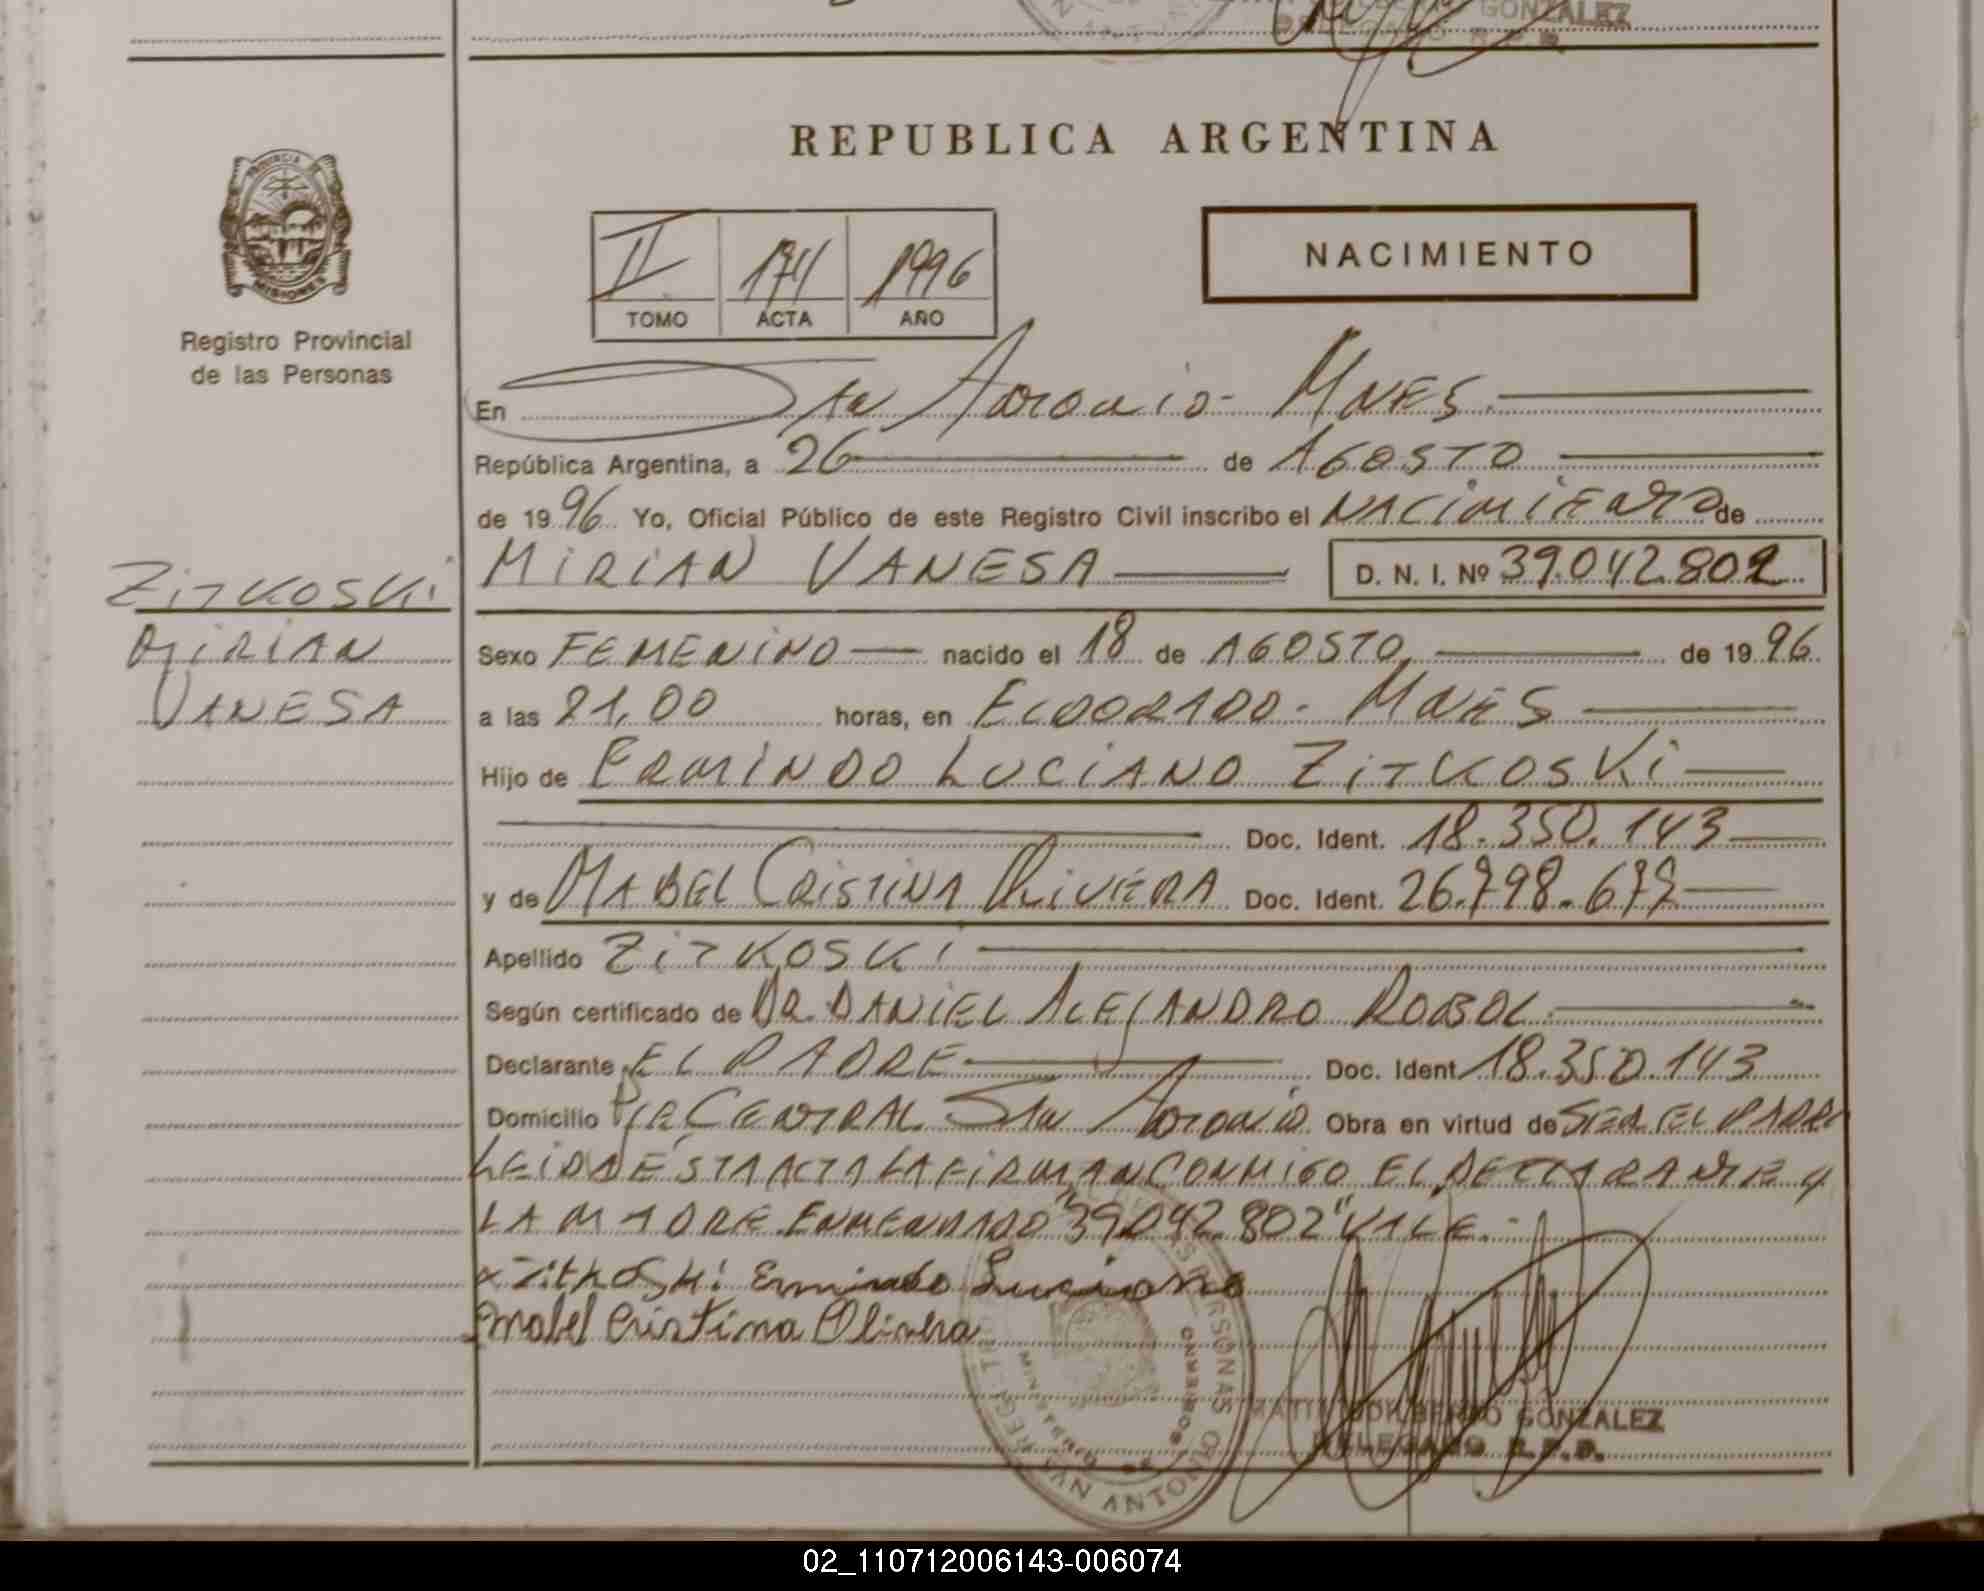 GONZALEZ
REPUBLICA ARGENTINA
PROVINCIA DE
MISIONES
Registro Provincial
de las Personas
II 174 1996
TOMO ACTA AÑO
NACIMIENTO
En San Antonio - Mnes.
República Argentina, a 26 de AGOSTO
de 1996 Yo, Oficial Público de este Registro Civil inscribo el NACIMIENTO de
MIRIAN VANESA D. N. I. Nº 39.042.802
ZITKOSKI
MIRIAN
VANESA
Sexo FEMENINO nacido el 18 de AGOSTO de 1996.
a las 21,00 horas, en ELDORADO - MNES
Hijo de ERMINDO LUCIANO ZITKOSKI
Doc. Ident. 18.350.143
y de MABEL CRISTINA OLIVERA Doc. Ident. 26.798.679
Apellido ZITKOSKI
Según certificado de DR. DANIEL ALEJANDRO ROBOL
Declarante EL PADRE Doc. Ident 18.350.143
Domicilio Pje CENTRAL San Antonio Obra en virtud de SER EL PADRE
LEIDA ÉSTA ACTA LA FIRMAN CONMIGO EL DECLARANTE Y
LA MADRE. ENMENDADO "39042.802" VALE.-
x Zitkoski Ermindo Luciano
Mabel Cristina Olivera
GONZALEZ
DELEGADO R.P.P.
02_110712006143-006074